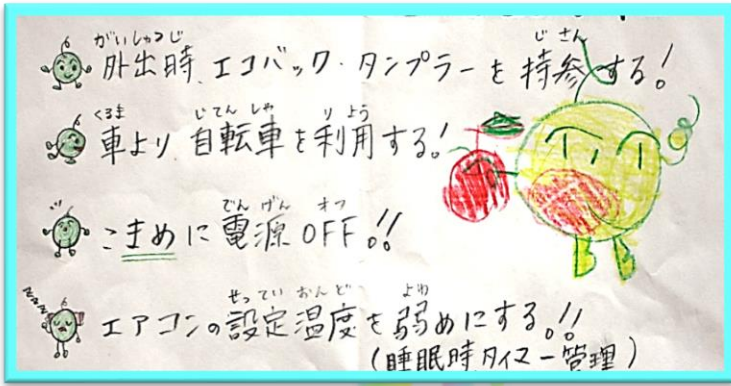 がいしゅつじ じさん
外出時、エコバック・タンブラーを持参する!
くるま じてんしゃ りよう
車より自転車を利用する!
でんげん オフ
こまめに電源OFF!!
せっていおんど よわ
エアコンの設定温度を弱めにする!!
(睡眠時タイマー管理)
zzzz